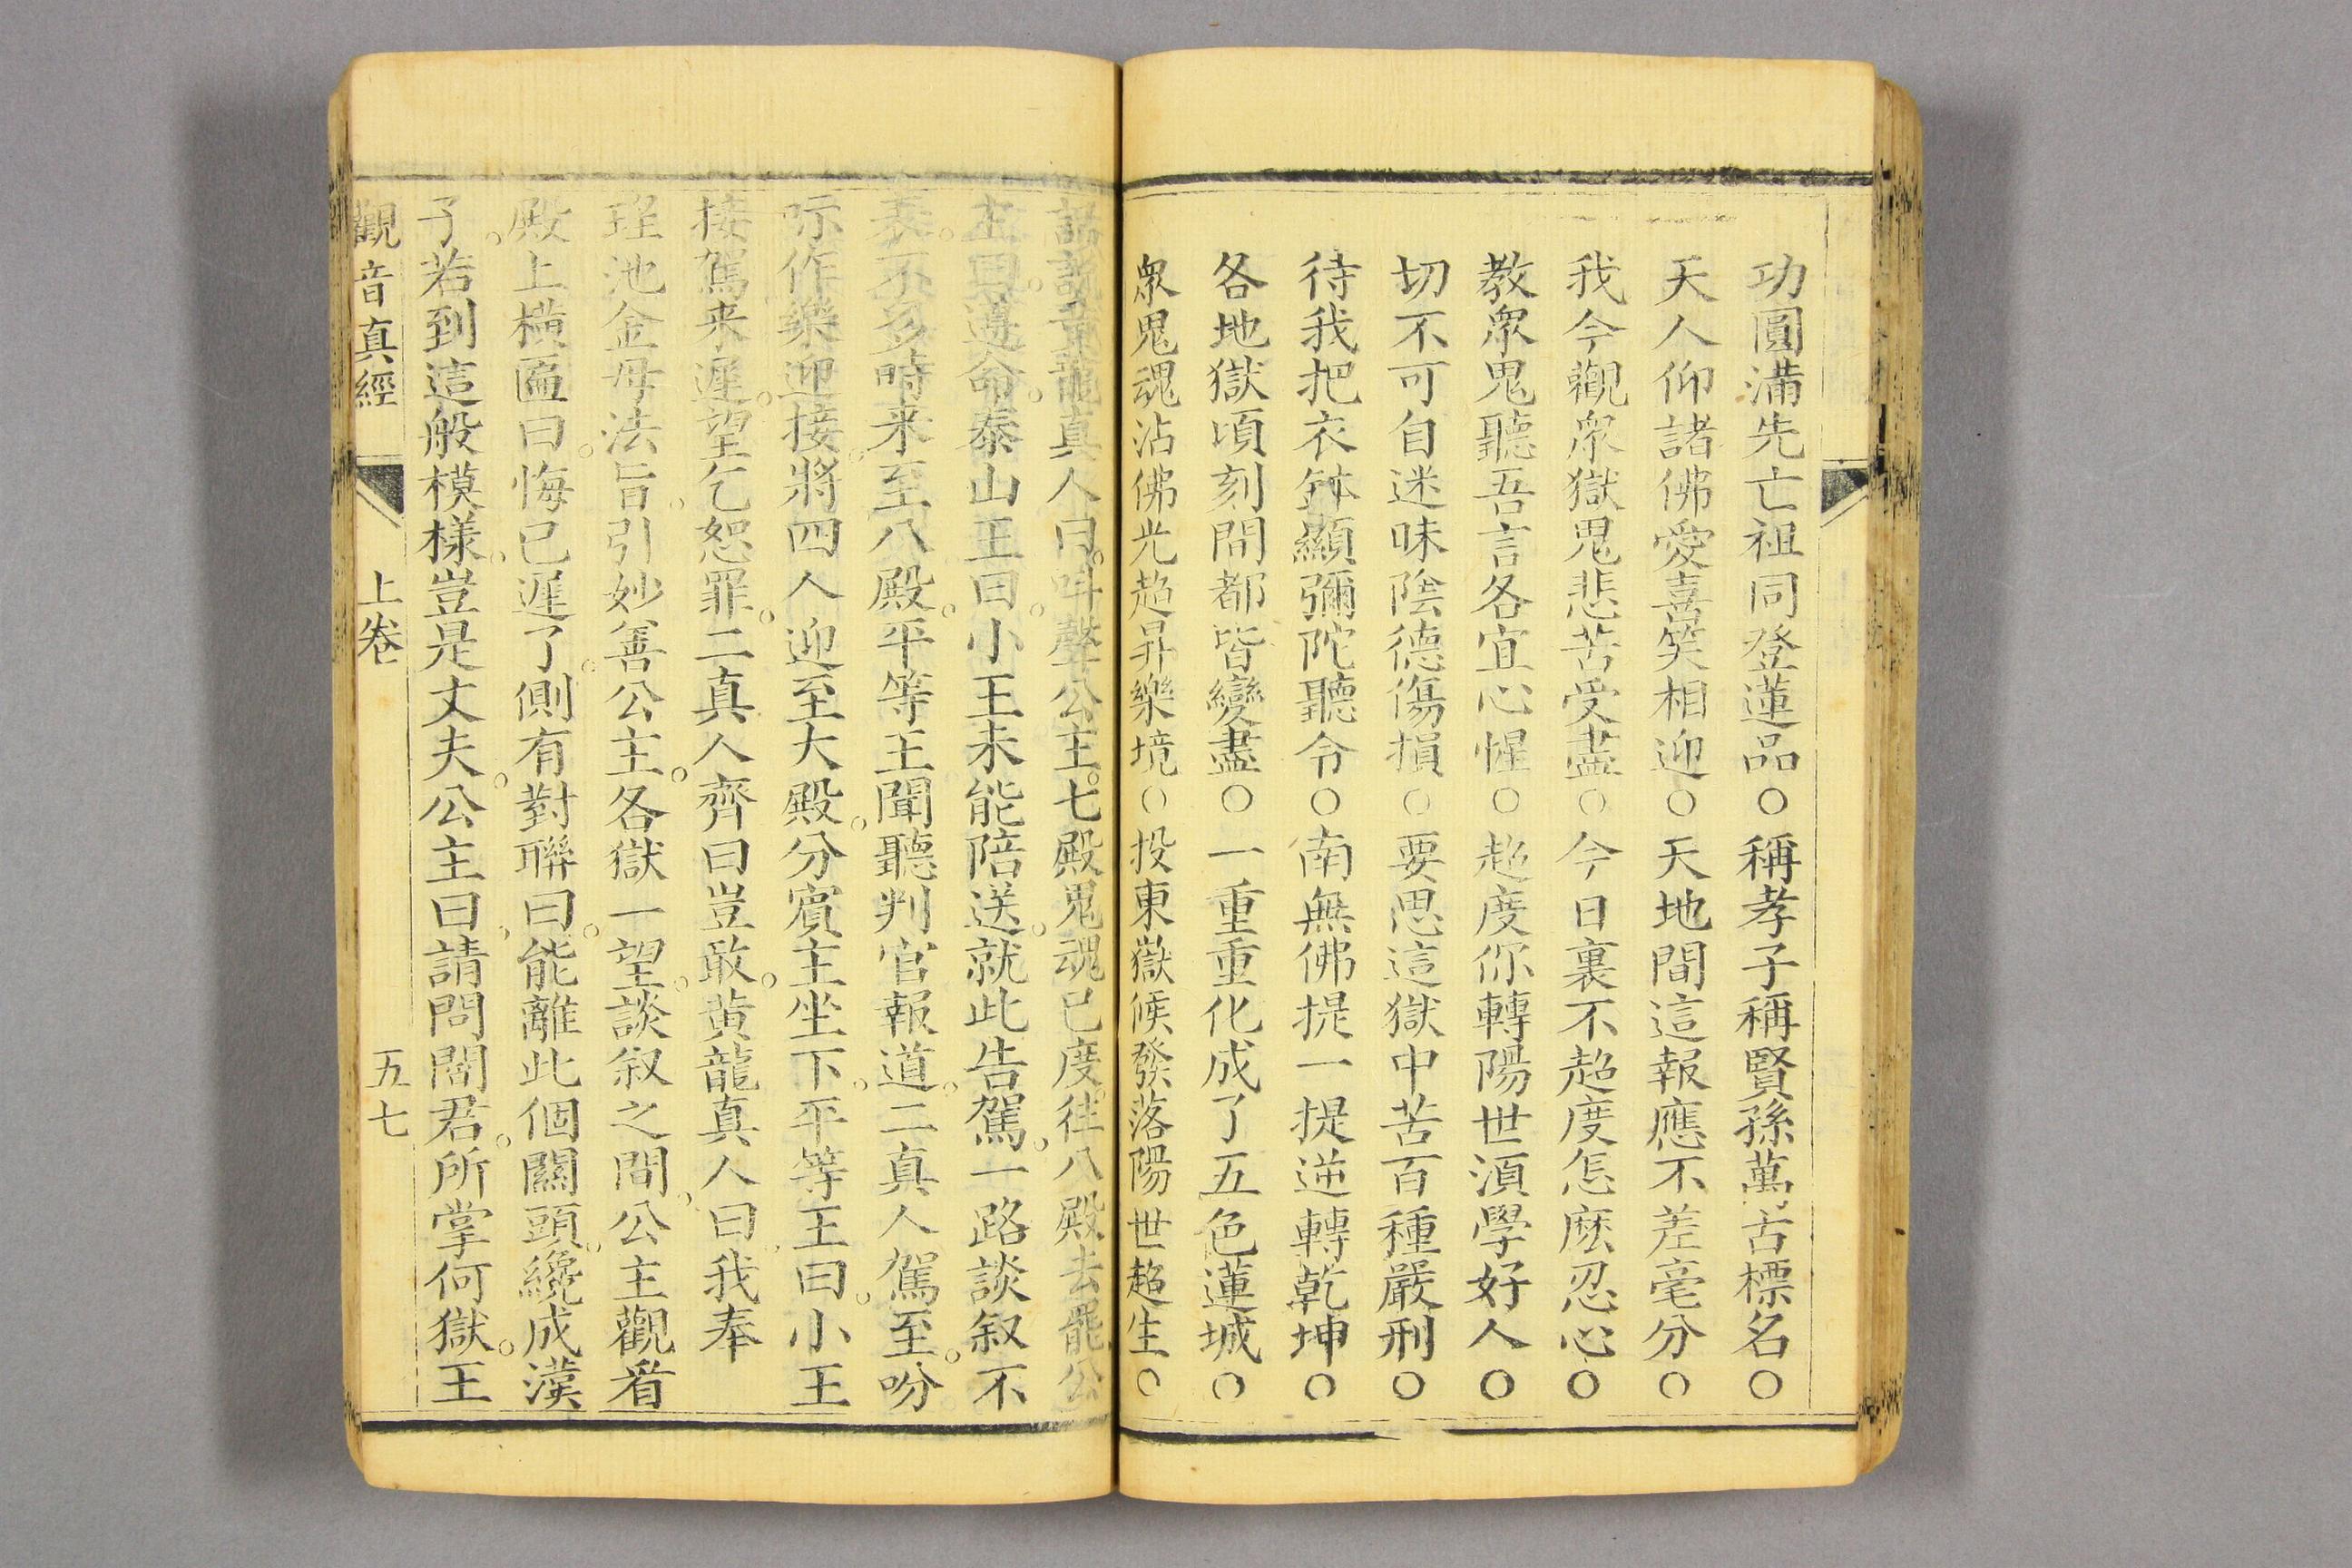 功圓滿先亡祖同登蓮品○稱孝子稱賢孫萬古標名○
天人仰諸佛愛喜笑相迎○天地間這報應不差毫分○
我今觀衆獄鬼悲苦受盡○今日裏不超度怎麽忍心○
教衆鬼聽吾言各宜心惺○超度你轉陽世湏學好人○
切不可自迷昧陰德傷損○要思這獄中苦百種嚴刑○
待我把衣鉢顯彌陀聽令○南無佛提一提逆轉乾坤○
各地獄頃刻間都皆變盡○一重重化成了五色蓮城○
衆鬼魂沾佛光超昇樂境○投東嶽候發落陽世超生○
話說黃龍真人曰。呌聲公主。七殿鬼魂已度。往八殿去罷。公
主曰。遵命。泰山王曰。小王未能陪送。就此告駕。一路談叙不
表。不多時来至八殿。平等王聞聽判官報道。二真人駕至。吩
咐作樂迎接。將四人迎至大殿。分賓主坐下。平等王曰。小王
接駕来遲。望乞恕罪。二真人齊曰豈敢。黄龍真人曰。我奉
瑤池金母法旨。引妙善公主。各獄一望。談叙之間。公主觀看
殿上橫匾曰。悔已遲了。側有對聯曰。能離此個關頭。纔成漢
子。若到這般模樣。豈是丈夫。公主曰。請問閻君。所掌何獄。王
觀音真經 上卷 五七